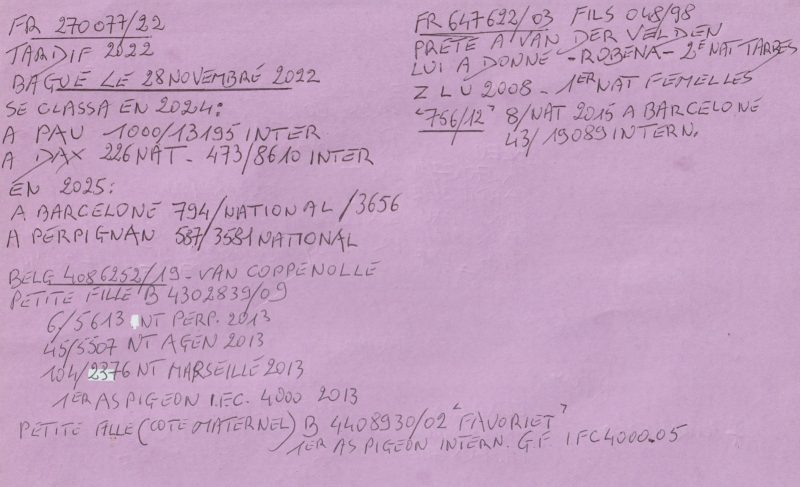 FR 270077/22
TARDIF 2022
BAGUE LE 28 NOVEMBRE 2022
SE CLASSA EN 2024:
A PAU 1000/13195 INTER
A DAX 226 NAT - 473/8610 INTER
EN 2025:
A BARCELONE 794/NATIONAL/3656
A PERPIGNAN 587/3581 NATIONAL
BELG 4086252/19 - VAN COPPENOLLE
PETITE FILLE B 4302839/09
6/5613 NT PERP. 2013
45/5507 NT AGEN 2013
104/2376 NT MARSEILLE 2013
1ER AS PIGEON I.F.C. 4000 2013
PETITE FILLE (COTE MATERNEL) B 4408930/02 "FAVORIET"
1ER AS PIGEON INTERN. G.F IFC4000.05
FR 647622/03 FILS 048/98
PRETE A VAN DER VELDEN
LUI A DONNE - ROBENA - 2E NAT TARBES
Z L U 2008 - 1ER NAT FEMELLES
"766/12" 8/NAT 2015 A BARCELONE
43/19089 INTERN.